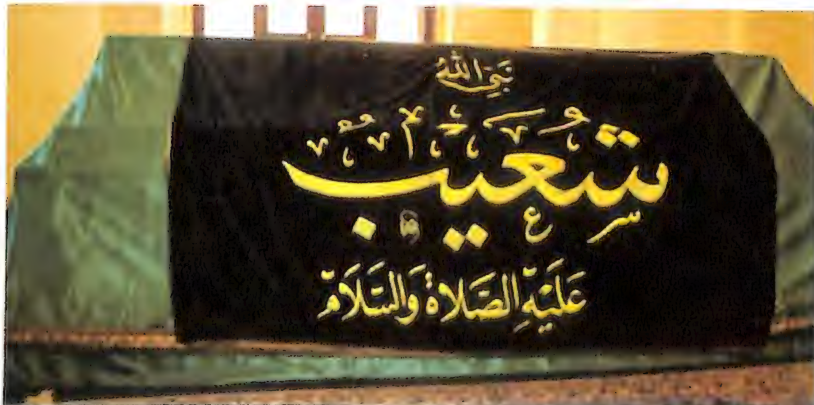 نَبِيُّ اللهِ
شُعَيْب
عَلَيْهِ الصَّلَاةُ وَالسَّلَامُ